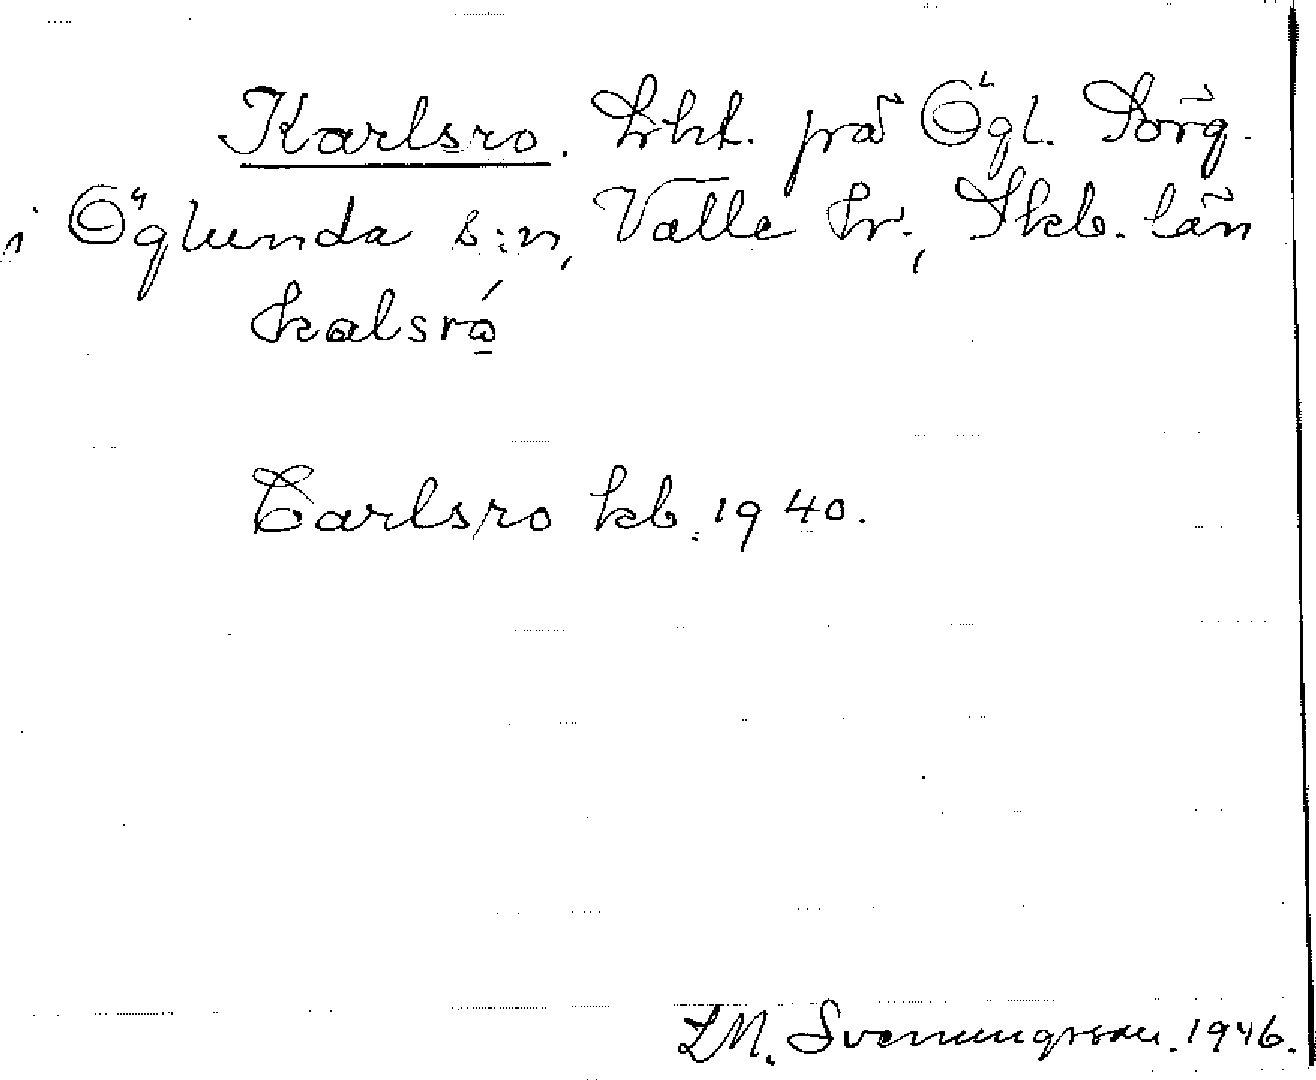 Karlsro. Lht. på Ögl. Storäng.
i Öglunda s:n, Valle hr., Skb. län
kalsró̱
Carlsro kb. 1940.
Z M. Svenungsson. 1946.